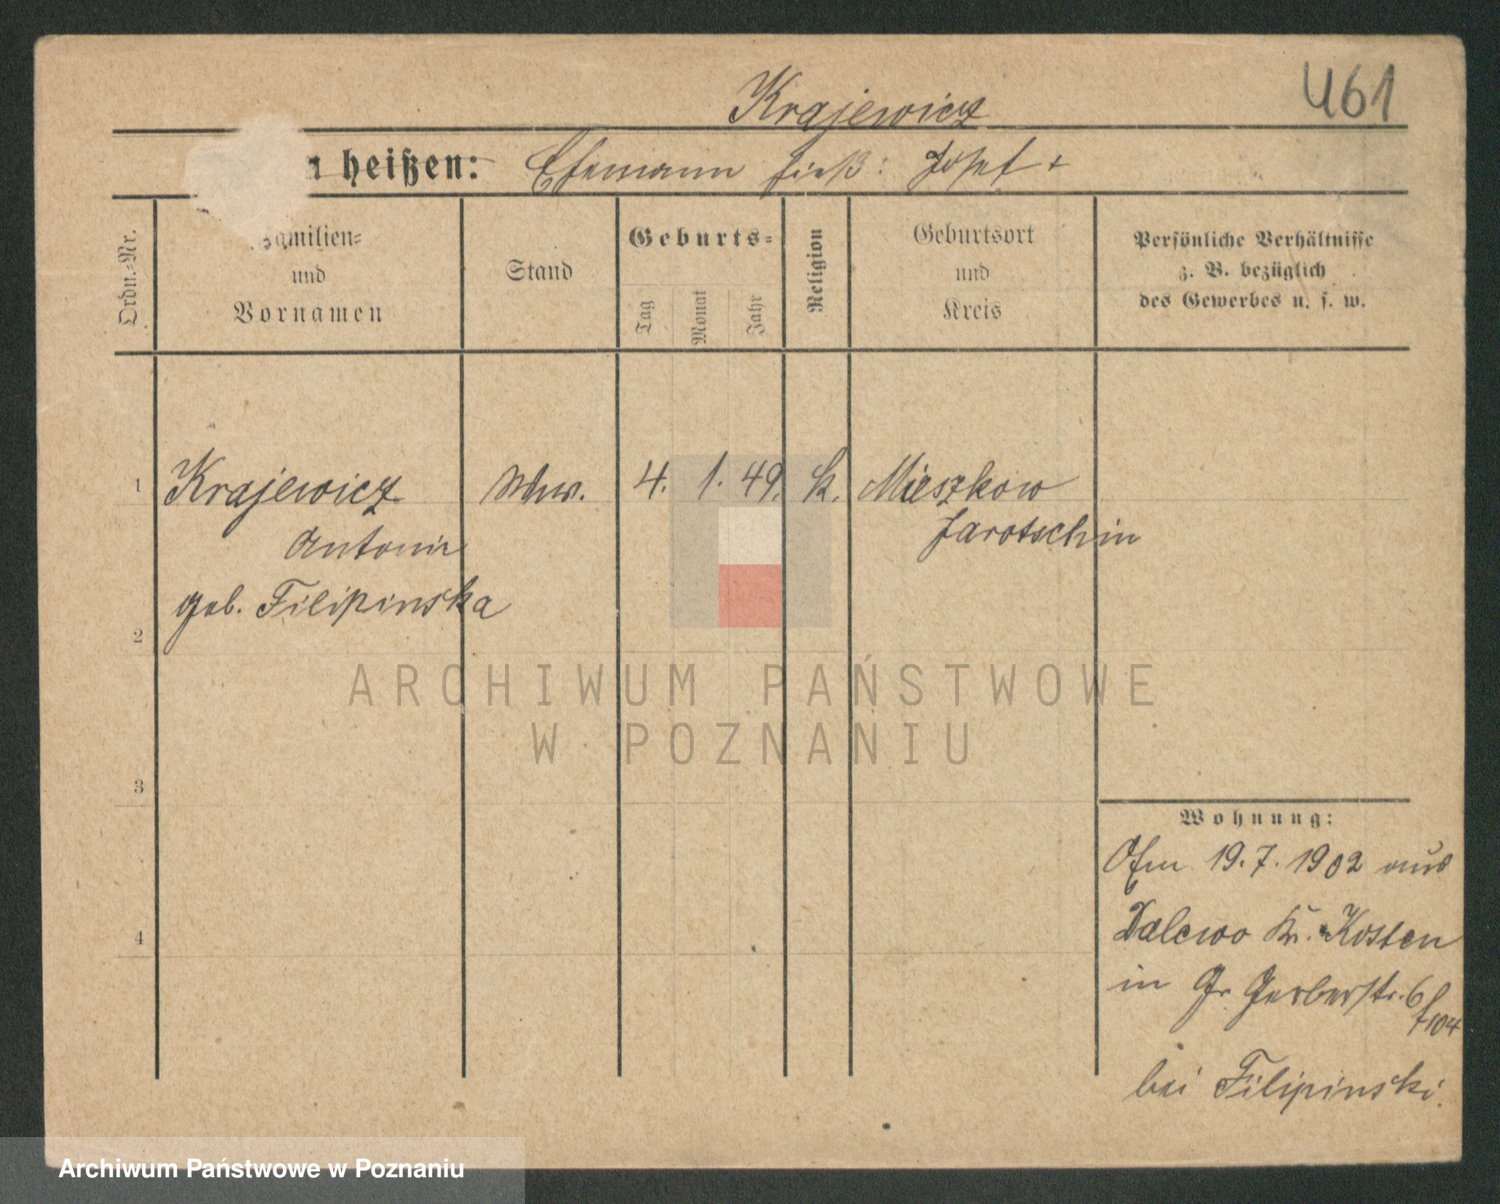 461
Krajewicz
n heißen: Ehemann hieß: Josef +
Ordn.-Nr.
Familien-
und
Vornamen
Stand
Geburts-
Tag
Monat
Jahr
Religion
Geburtsort
und
Kreis
Persönliche Verhältnisse
z. B. bezüglich
des Gewerbes u. s. w.
1 Krajewicz Wwe. 4. 1. 49. k. Mieszkow
Antonie Jarotschin
geb. Filipinska
2
3
4
Wohnung:
19.7.1902 aus
Dalewo Kr. Kosten
in Gr. Gerberstr. 6
bei Filipinski.
ARCHIWUM PAŃSTWOWE
W POZNANIU
Archiwum Państwowe w Poznaniu